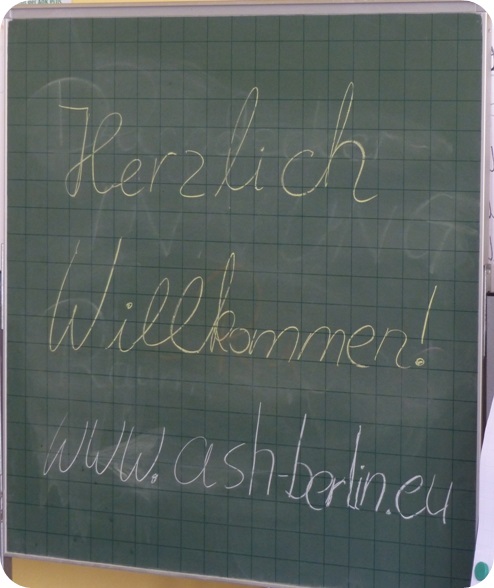 Herzlich
Willkommen!
www.ash-berlin.eu